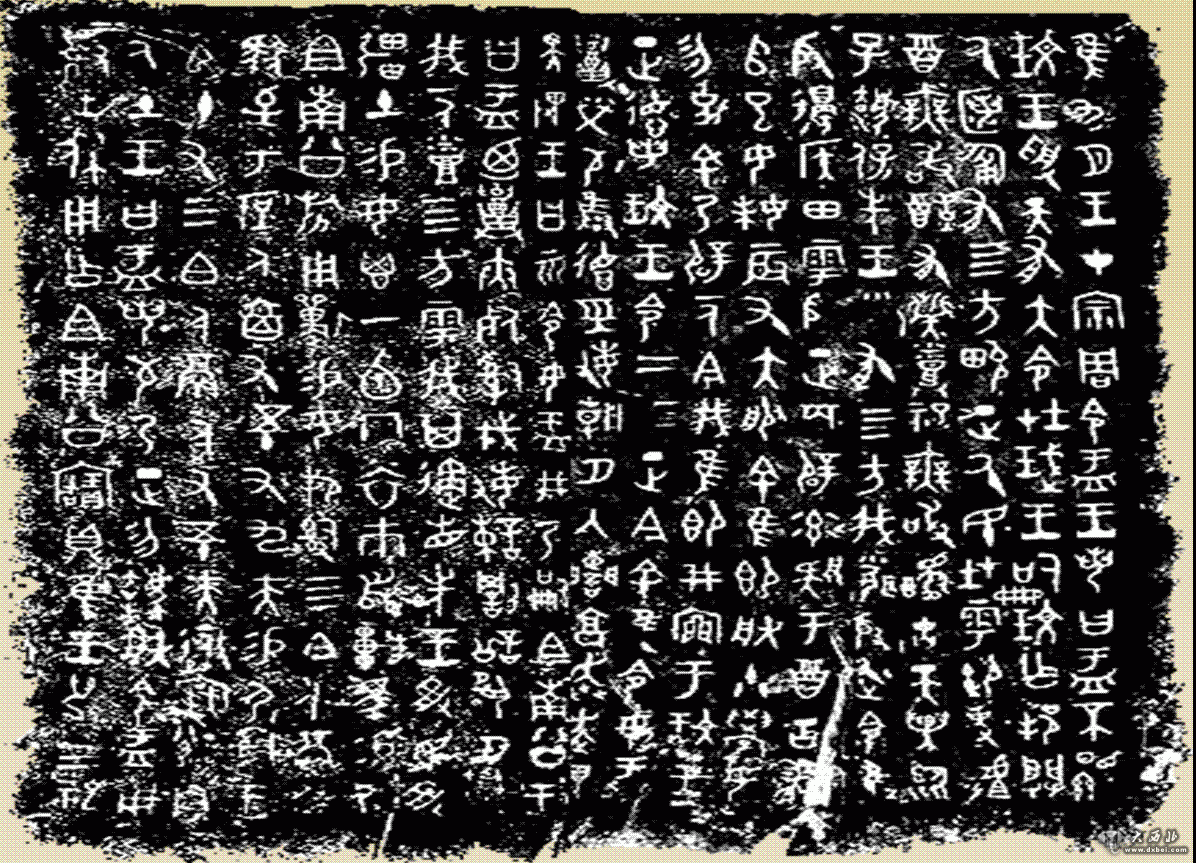 隹九月王才宗周令盂王若曰盂不顯
玟王受天有大令在珷王嗣玟乍邦闢
厥匿匍有四方畯正厥民在雩御事𠭯
酉無敢酖有祡蒸祀無敢醻古天異臨
子灋保先王有四方我聞殷述令隹
殷邊侯田雩殷正百辟率肄于酉古喪
𠂤巳女妹辰又大服余隹即朕小學女
勿余乃辟一人今我隹即井于玟王
正德若玟王令二三正今余隹令女盂
召榮敬雍德巠敏朝夕入讕享奔走畏
天畏王曰令女盂井乃嗣且南公王
曰盂迺召夾死司戎敏諫罰訟夙夕召
我一人烝四方雩我其遹省先王受民受
疆土易女鬯一卣冂衣巿舄車馬易乃
且南公旂用狩易女邦司四白人鬲自
馭至于庶人六百又五十又九夫易尸司王
臣十又三白人鬲千又五十夫遷自
厥土王曰盂若敬乃正勿灋朕令盂用
對王休用乍且南公寶鼎隹王廿又三祀
大西北
www.dxbei.com